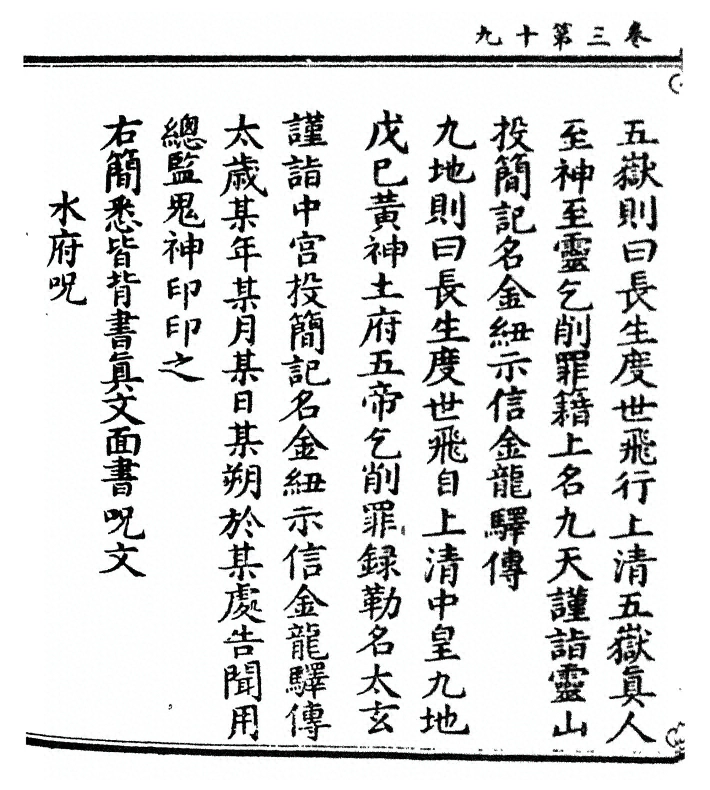 卷三第十九
五嶽則曰長生度世飛行上清五嶽眞人
至神至靈乞削罪籍上名九天謹詣靈山
投簡記名金紐示信金龍驛傳
九地則曰長生度世飛自上清中皇九地
戊巳黃神土府五帝乞削罪録勒名太玄
謹詣中宮投簡記名金紐示信金龍驛傳
太歲某年某月某日某朔於某處告聞用
總監鬼神印印之
右簡悉皆背書眞文面書呪文
水府呪